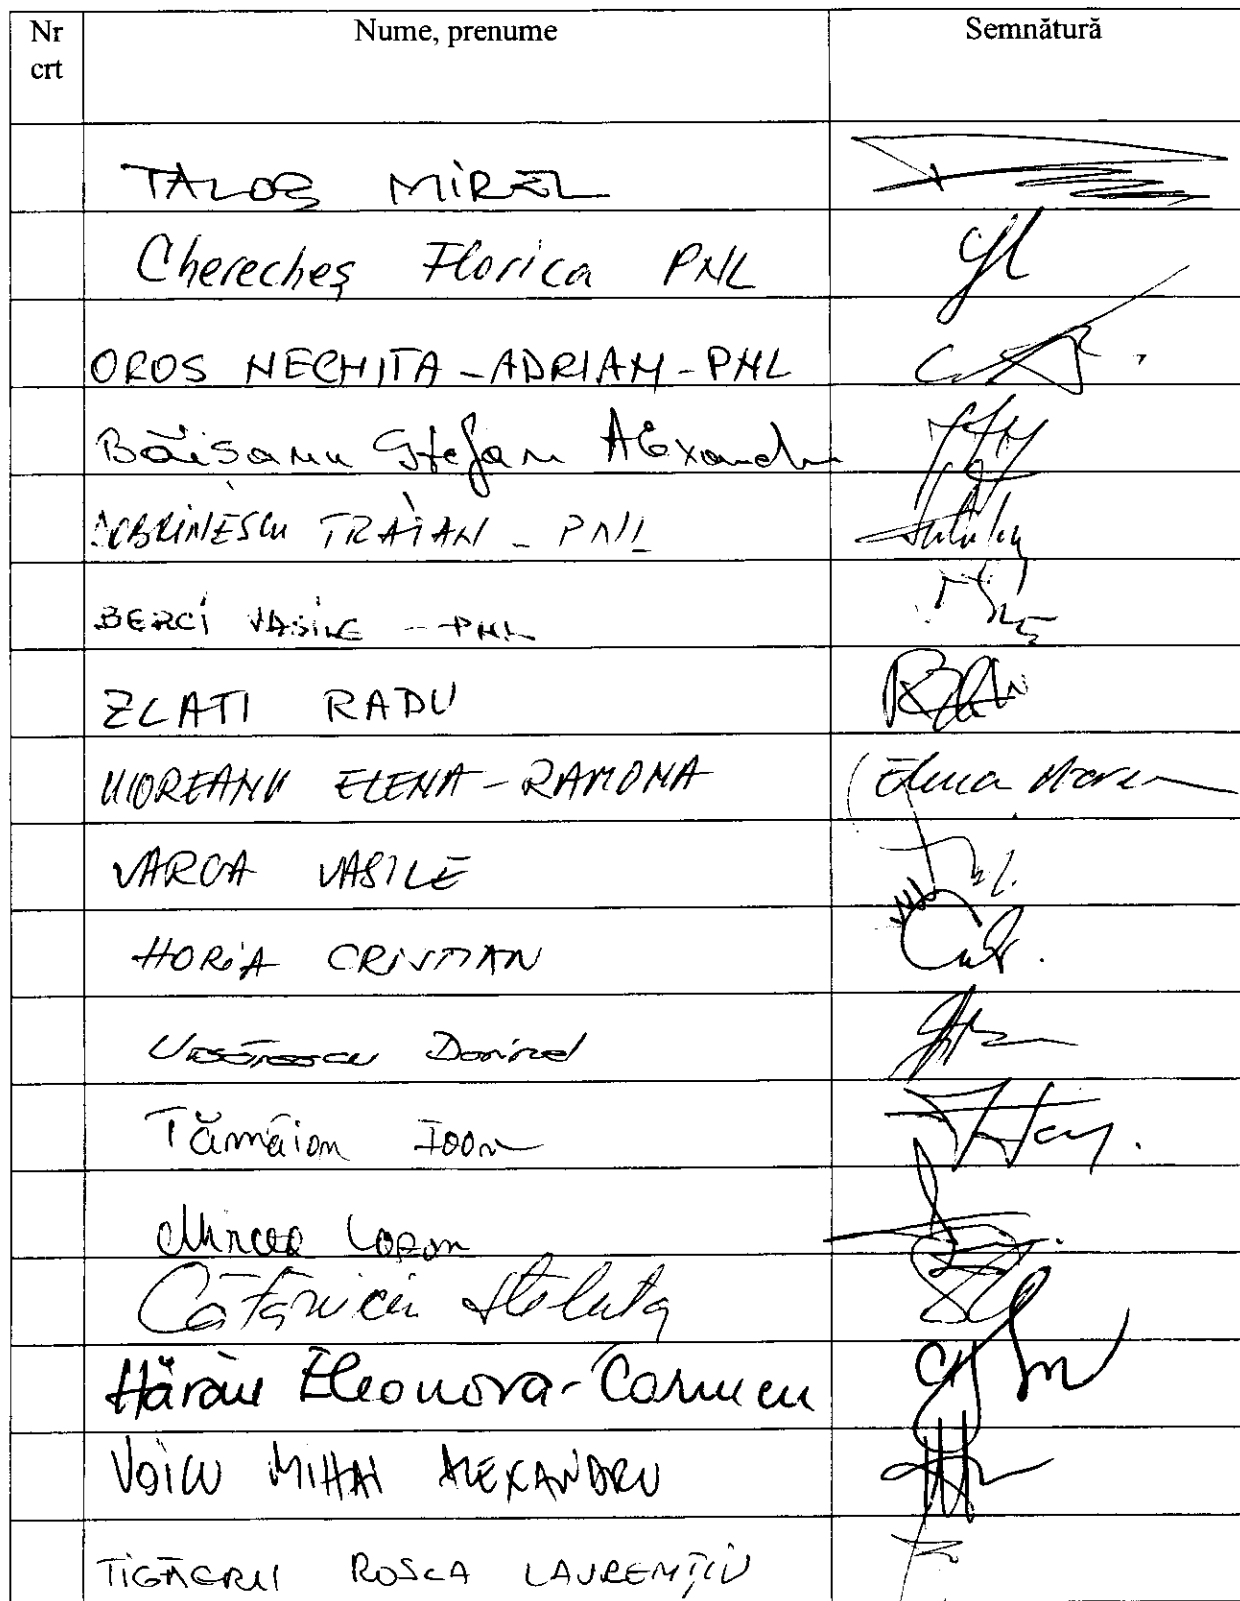 Nr crt Nume, prenume Semnătură
TALOȘ MIREL
Cherecheș Florica PNL
OROS NECHITA-ADRIAN-PNL
Băișanu Ștefan Alexandru
DOBRINESCU TRAIAN - PNL
BERCI VASILE - PNL
ZLATI RADU
UIOREANU ELENA-RAMONA
VARGA VASILE
HORIA CRISTIAN
Dorinel
Tămâian Ioan
Mircea
Cătăniciu Steluța
Hărău Eleonora-Carmen
VOICU MIHAI ALEXANDRU
ȚIGĂERU ROSCA LAURENȚIU